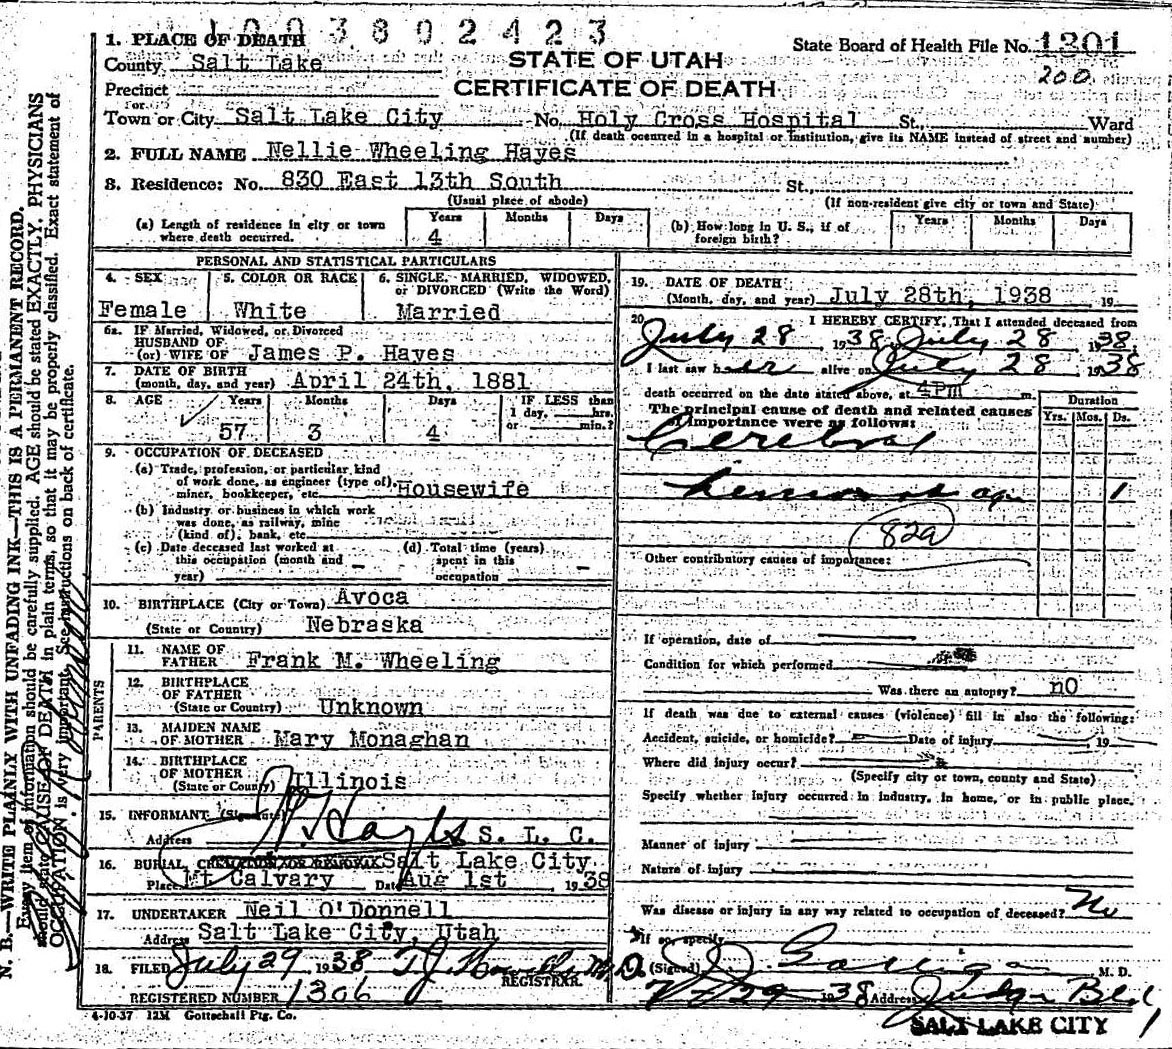 1003802423
1. PLACE OF DEATH
County Salt Lake
STATE OF UTAH
CERTIFICATE OF DEATH
State Board of Health File No. 1301
200
Precinct
or
Town or City Salt Lake City No. Holy Cross Hospital St., Ward
(If death occurred in a hospital or institution, give its NAME instead of street and number)
2. FULL NAME Nellie Wheeling Hayes
3. Residence: No. 830 East 13th South St.,
(Usual place of abode) (If non-resident give city or town and State)
(a) Length of residence in city or town where death occurred. Years 4 Months Days
(b) How long in U. S., if of foreign birth? Years Months Days
PERSONAL AND STATISTICAL PARTICULARS
4. SEX Female
5. COLOR OR RACE White
6. SINGLE, MARRIED, WIDOWED, or DIVORCED (Write the Word) Married
6a. IF Married, Widowed, or Divorced
HUSBAND OF
(or) WIFE OF James P. Hayes
7. DATE OF BIRTH
(month, day, and year) April 24th, 1881
8. AGE Years 57 Months 3 Days 4
IF LESS than 1 day, hrs. or min.?
9. OCCUPATION OF DECEASED
(a) Trade, profession, or particular kind
of work done, as engineer (type of),
miner, bookkeeper, etc. Housewife
(b) Industry or business in which work
was done, as railway, mine
(kind of), bank, etc.
(c) Date deceased last worked at this occupation (month and year) -
(d) Total time (years) spent in this occupation -
10. BIRTHPLACE (City or Town) Avoca
(State or Country) Nebraska
PARENTS
11. NAME OF
FATHER Frank M. Wheeling
12. BIRTHPLACE
OF FATHER
(State or Country) Unknown
13. MAIDEN NAME
OF MOTHER Mary Monaghan
14. BIRTHPLACE
OF MOTHER
(State or County) Illinois
15. INFORMANT (Signature) Hayes
Address S. L. C.
16. BURIAL, CREMATION OR REMOVAL Salt Lake City
Place Mt Calvary Date Aug 1st 1938
17. UNDERTAKER Neil O'Donnell
Address Salt Lake City, Utah
18. FILED July 29, 1938 M.D.
REGISTRAR.
REGISTERED NUMBER 1306
4-10-37 12M Gottschall Ptg. Co.
19. DATE OF DEATH
(Month, day, and year) July 28th, 1938 19
20. I HEREBY CERTIFY, That I attended deceased from
July 28, 1938, July 28, 1938.
I last saw her alive on July 28 1938
death occurred on the date stated above, at 4Pm m.
The principal cause of death and related causes
of importance were as follows:
Duration
Yrs. Mos. Ds.
Cerebral
hemorrhage 1
82a
Other contributory causes of importance:
If operation, date of
Condition for which performed
Was there an autopsy? no
If death was due to external causes (violence) fill in also the following:
Accident, suicide, or homicide? Date of injury 19
Where did injury occur?
(Specify city or town, county and State)
Specify whether injury occurred in industry, in home, or in public place.
Manner of injury
Nature of injury
Was disease or injury in any way related to occupation of deceased? No
If so, specify
(Signed) M. D.
7-29-1938 Address Judge Bld
SALT LAKE CITY
N. B.—WRITE PLAINLY WITH UNFADING INK—THIS IS A PERMANENT RECORD.
Every item of information should be carefully supplied. AGE should be stated EXACTLY. PHYSICIANS
should state CAUSE OF DEATH in plain terms, so that it may be properly classified. Exact statement of
OCCUPATION is very important. See instructions on back of certificate.